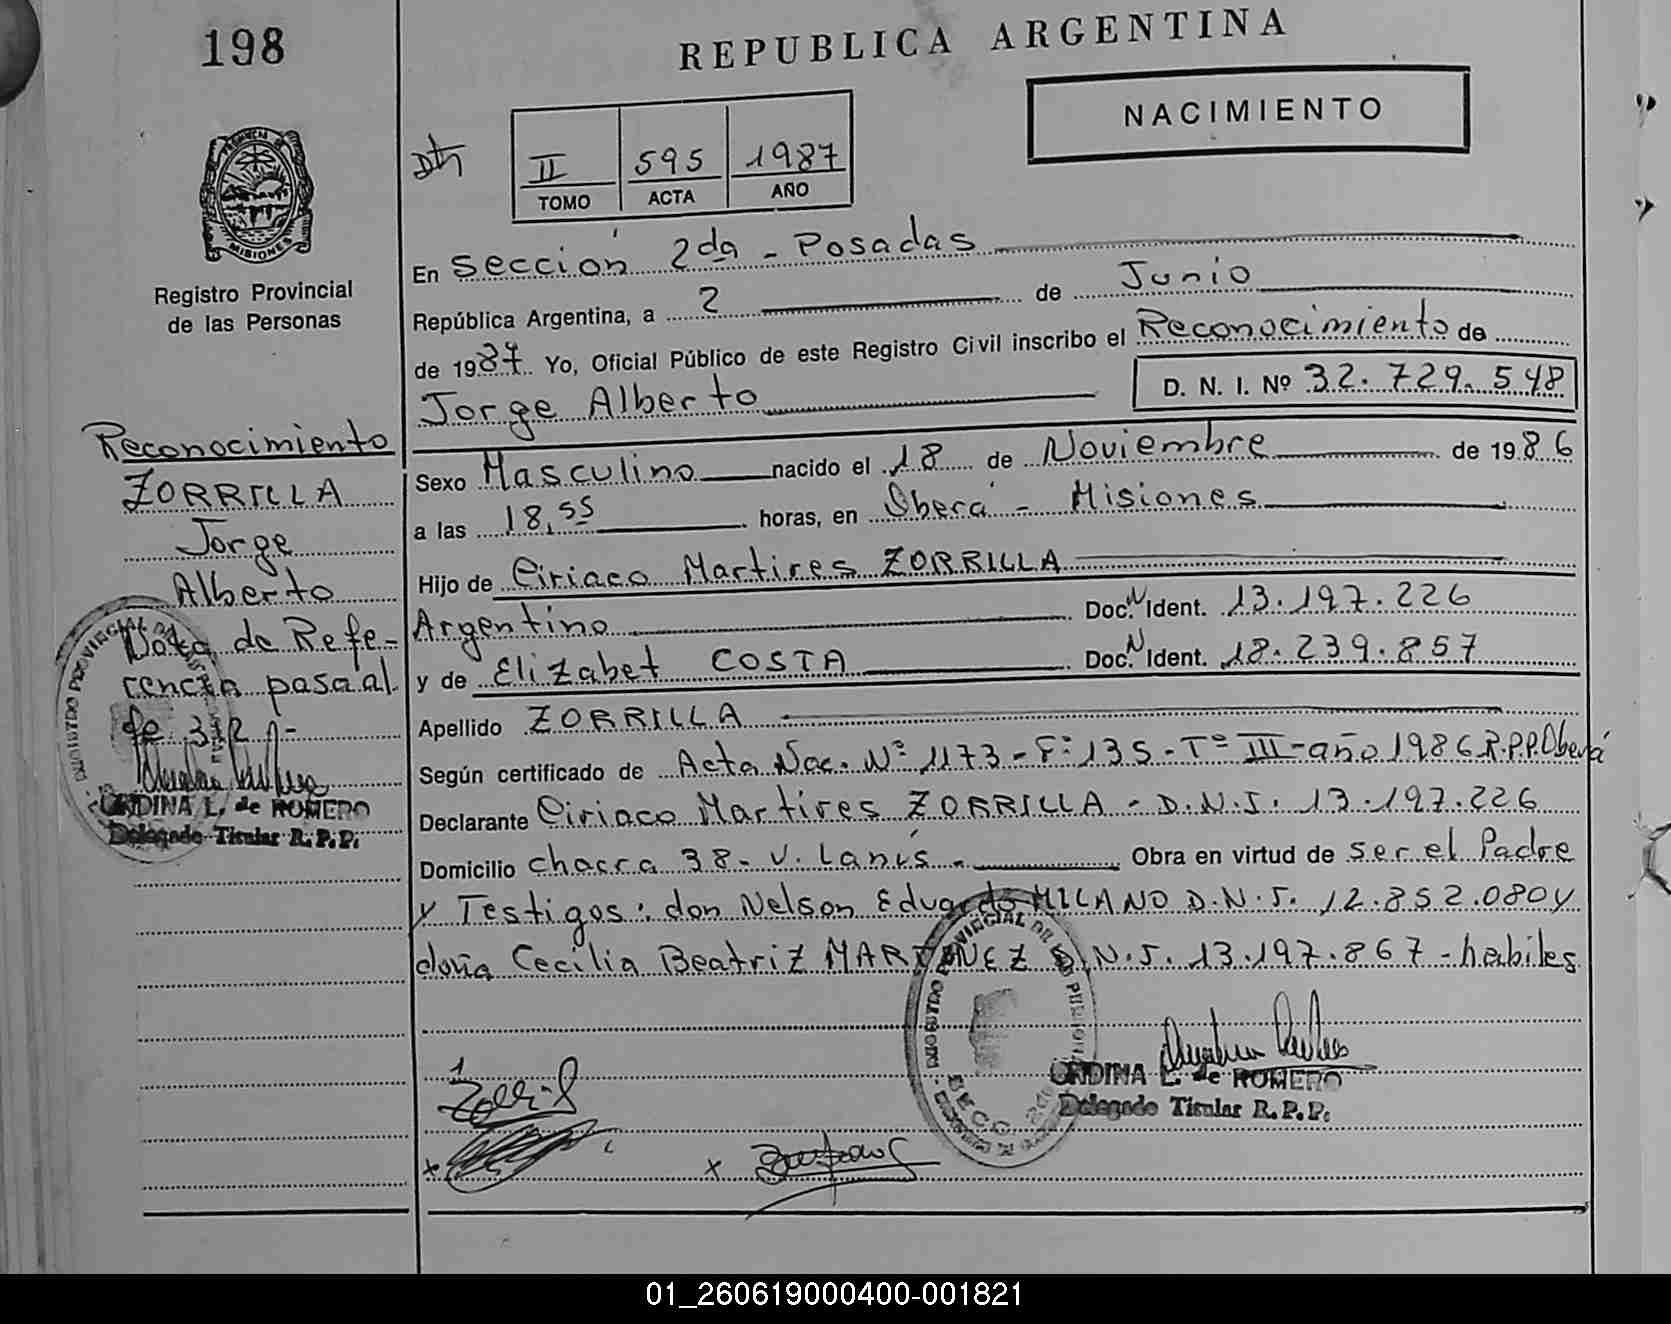 198
REPUBLICA ARGENTINA
NACIMIENTO
II 595 1987
TOMO ACTA AÑO
PROVINCIA DE
MISIONES
Registro Provincial
de las Personas
En Sección 2da - Posadas
República Argentina, a 2 de Junio
de 1987 Yo, Oficial Público de este Registro Civil inscribo el Reconocimiento de
Jorge Alberto D. N. I. Nº 32.729.548
Reconocimiento
ZORRILLA
Jorge
Alberto
Nota de Refe-
rencia pasa al
fe. 312
ORDINA L. de ROMERO
Delegado Titular R. P. P.
Sexo Masculino nacido el 18 de Noviembre de 1986
a las 18,55 horas, en Oberá - Misiones
Hijo de Ciriaco Martires ZORRILLA
Argentino Doc. N Ident. 13.197.226
y de Elizabet COSTA Doc. N Ident. 18.239.857
Apellido ZORRILLA
Según certificado de Acta Nac. Nº 1173 - Fº 135 - Tº III - año 1986 R.P.P. Oberá
Declarante Ciriaco Martires ZORRILLA - D.N.I. 13.197.226
Domicilio chacra 38 - V. Lanús - Obra en virtud de ser el Padre
y Testigos: don Nelson Eduardo MILANO D.N.I. 12.852.080 y
doña Cecilia Beatriz MARTINEZ D.N.I. 13.197.867 - habiles
ORDINA L. de ROMERO
Delegado Titular R. P. P.
01_260619000400-001821